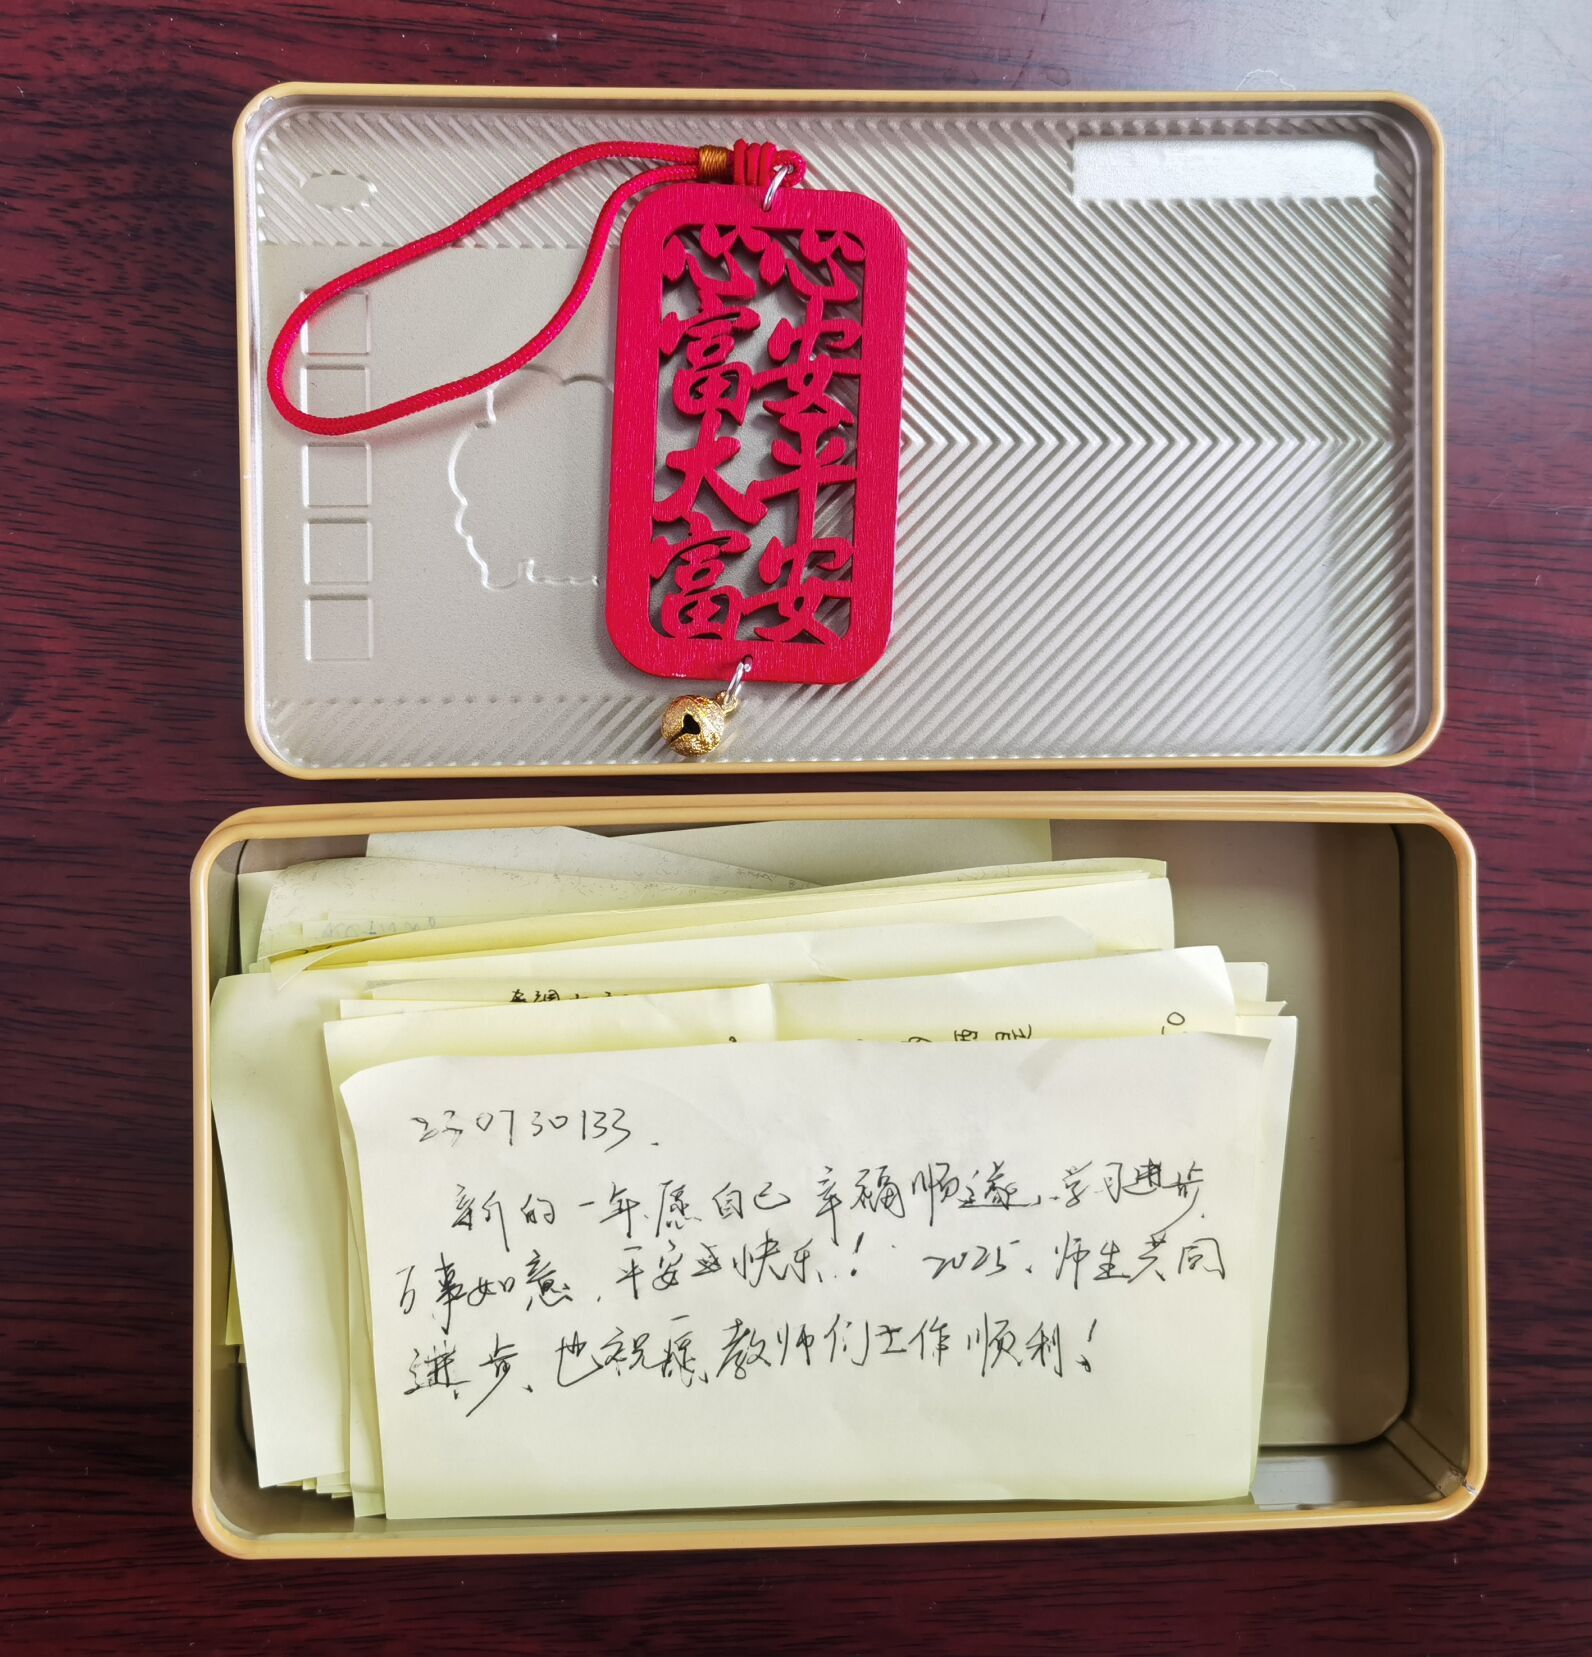 心安平安
心富大富
230730133.
新的一年愿自己幸福顺遂、学习进步
万事如意、平安喜快乐！ 2025、师生共同
进步、也祝愿教师们工作顺利！